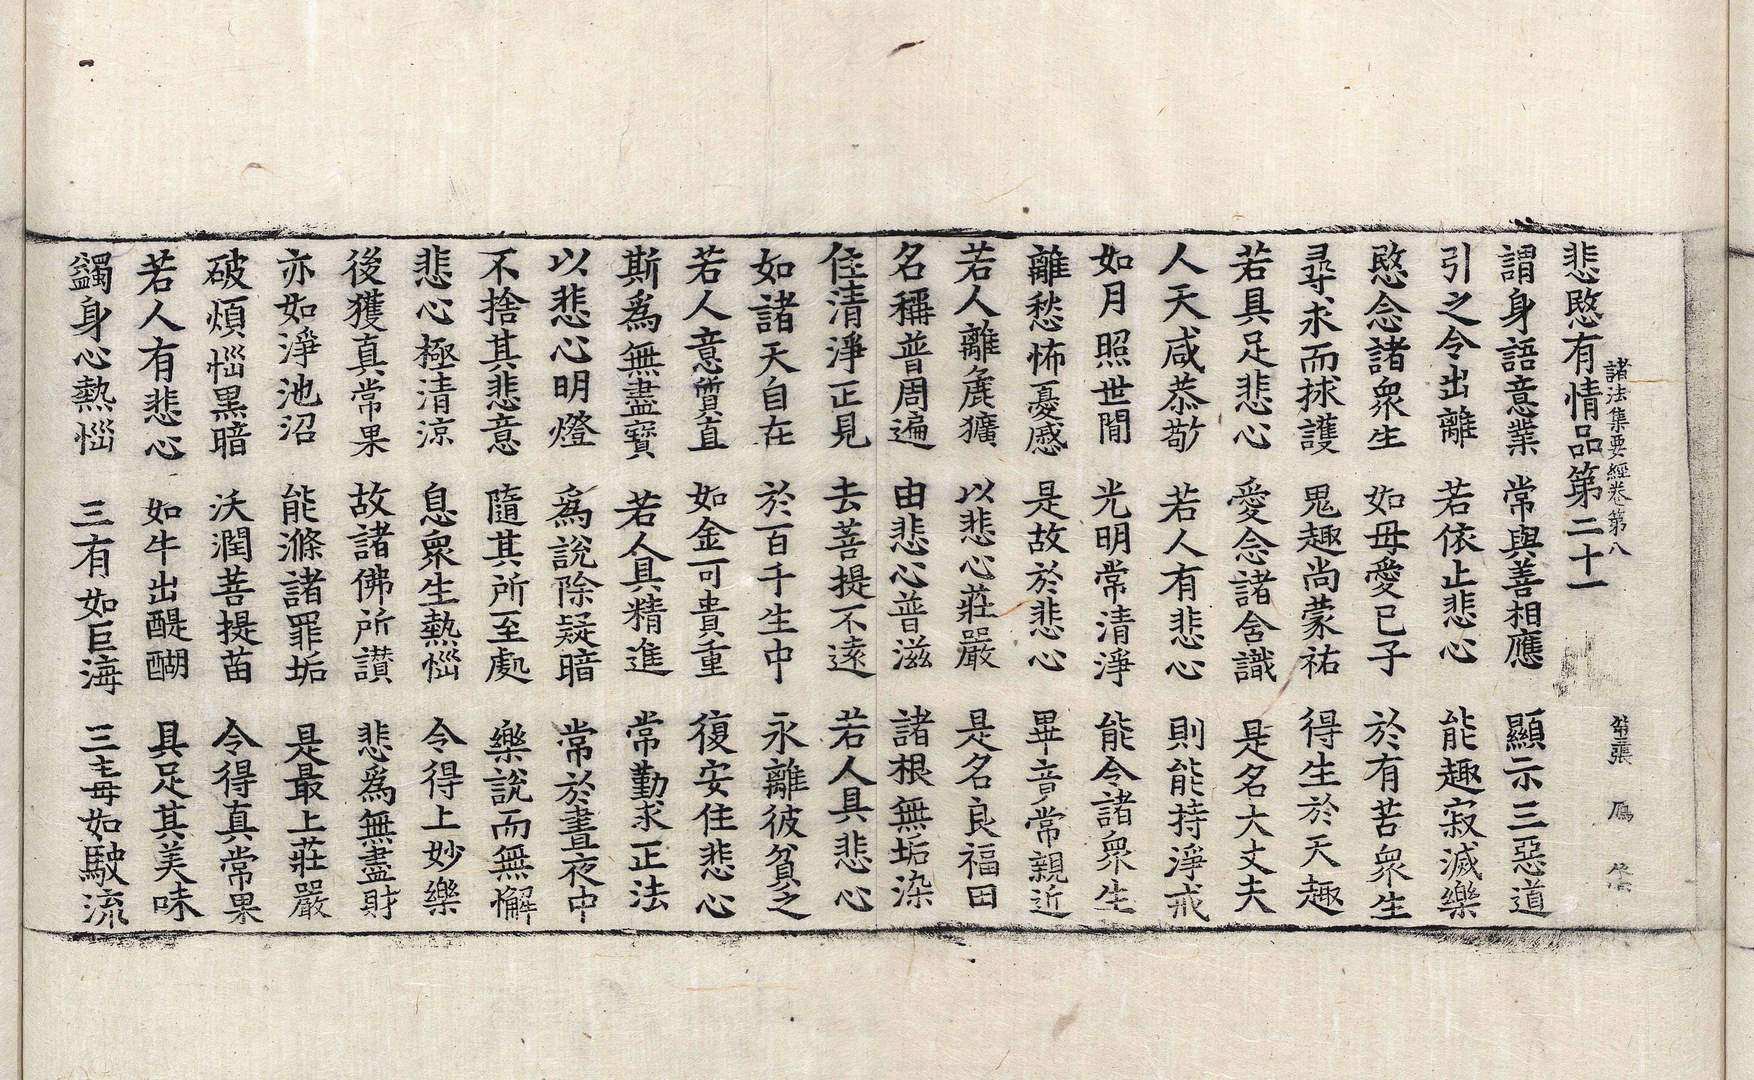 諸法集要經卷第八 張
悲愍有情品第二十一
謂身語意業 常與善相應 顯示三惡道
引之令出離 若依止悲心 能趣寂滅樂
愍念諸衆生 如母愛已子 於有苦衆生
尋求而捄護 鬼趣尚蒙祐 得生於天趣
若具足悲心 愛念諸含識 是名大丈夫
人天咸恭敬 若人有悲心 則能持淨戒
如月照世間 光明常清淨 能令諸衆生
離愁怖憂慼 是故於悲心 畢竟常親近
若人離麁獷 以悲心莊嚴 是名良福田
名稱普周遍 由悲心普滋 諸根無垢染
住清淨正見 去菩提不遠 若人具悲心
如諸天自在 於百千生中 永離彼貧乏
若人意質直 如金可貴重 復安住悲心
斯爲無盡寶 若人具精進 常勤求正法
以悲心明燈 爲說除疑暗 常於晝夜中
不捨其悲意 隨其所至處 樂說而無懈
悲心極清涼 息衆生熱惱 令得上妙樂
後獲真常果 故諸佛所讃 悲爲無盡財
亦如淨池沼 能滌諸罪垢 是最上莊嚴
破煩惱黒暗 沃潤菩提苗 令得真常果
若人有悲心 如牛出醍醐 具足其美味
蠲身心熱惱 三有如巨海 三毒如駛流